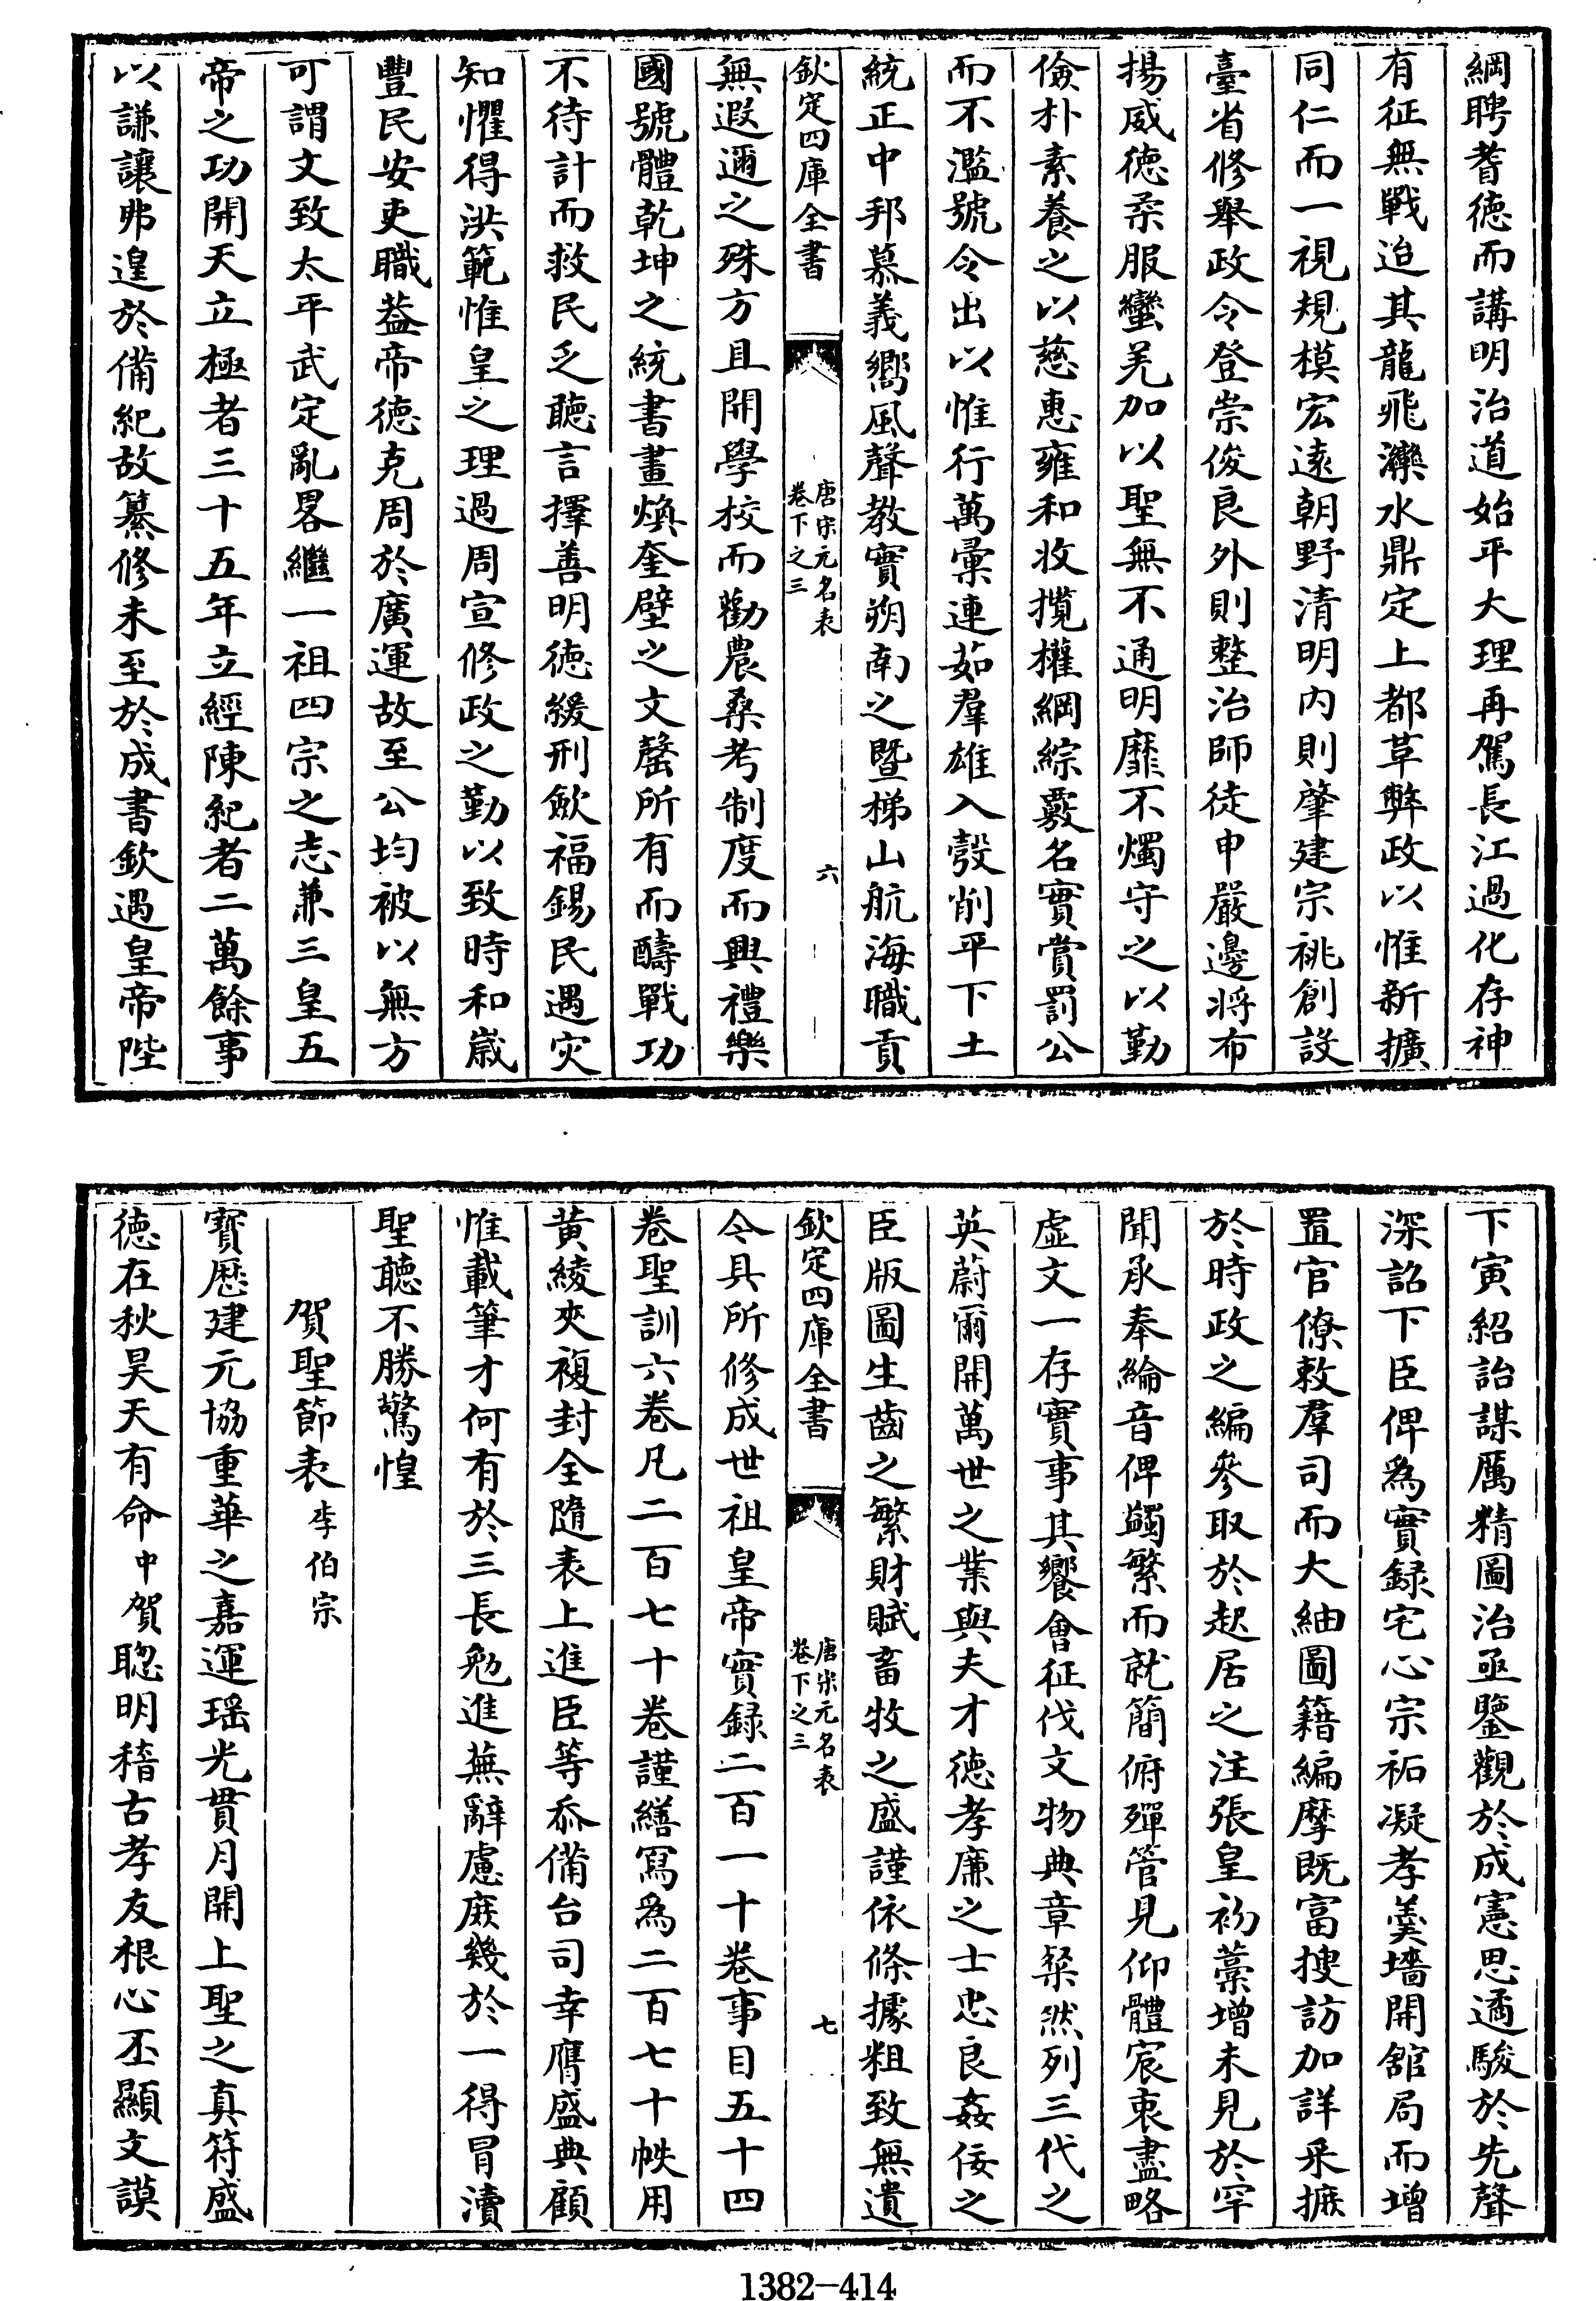 綱聘耆徳而講明治道始平大理再駕長江過化存神
有征無戰迨其龍飛灤水鼎定上都草弊政以惟新擴
同仁而一視規模宏逺朝野清明内則肇建宗祧創設
臺省修舉政令登崇俊良外則整治師徒申嚴邊将布
揚威徳柔服蠻羌加以聖無不通明靡不燭守之以勤
儉朴素養之以慈惠雍和收攬權綱綜覈名實賞罰公
而不濫號令出以惟行萬彚連茹羣雄入彀削平下土
統正中邦慕義嚮風聲教實朔南之暨梯山航海職貢
欽定四庫全書
唐宋元名表
卷下之三
六
無遐邇之殊方且開學校而勸農桑考制度而興禮樂
國號體乾坤之統書畫煥奎壁之文罄所有而醻戰功
不待計而救民乏聽言擇善明徳緩刑歛福錫民遇灾
知懼得洪範惟皇之理過周宣修政之勤以致時和嵗
豐民安吏職葢帝徳克周於廣運故至公均被以無方
可謂文致太平武定亂畧繼一祖四宗之志兼三皇五
帝之功開天立極者三十五年立經陳紀者二萬餘事
以謙讓弗遑於備紀故纂修未至於成書欽遇皇帝陛
下寅紹詒謀厲精圖治亟鑒觀於成憲思遹駿於先聲
深詔下臣俾爲實録宅心宗祏凝孝羹墻開舘局而增
置官僚敕羣司而大紬圖籍編摩既富搜訪加詳采摭
於時政之編參取於起居之注張皇初藁增未見於罕
聞承奉綸音俾蠲繁而就簡俯殫管見仰體宸衷盡略
虚文一存實事其饗會征伐文物典章粲然列三代之
英蔚爾開萬世之業與夫才徳孝廉之士忠良姦佞之
臣版圖生齒之繁財賦畜牧之盛謹依條據粗致無遺
欽定四庫全書
唐宋元名表
卷下之三
七
令具所修成世祖皇帝實録二百一十卷事目五十四
卷聖訓六卷凡二百七十卷謹繕寫爲二百七十帙用
黄綾夾複封全隨表上進臣等忝備台司幸膺盛典顧
惟載筆才何有於三長勉進蕪辭慮庶幾於一得冒瀆
聖聽不勝驚惶
賀聖節表 李伯宗
寳厯建元協重華之嘉運瑶光貫月開上聖之真符盛
徳在秋昊天有命中賀聰明稽古孝友根心丕顯文謨
1382—414